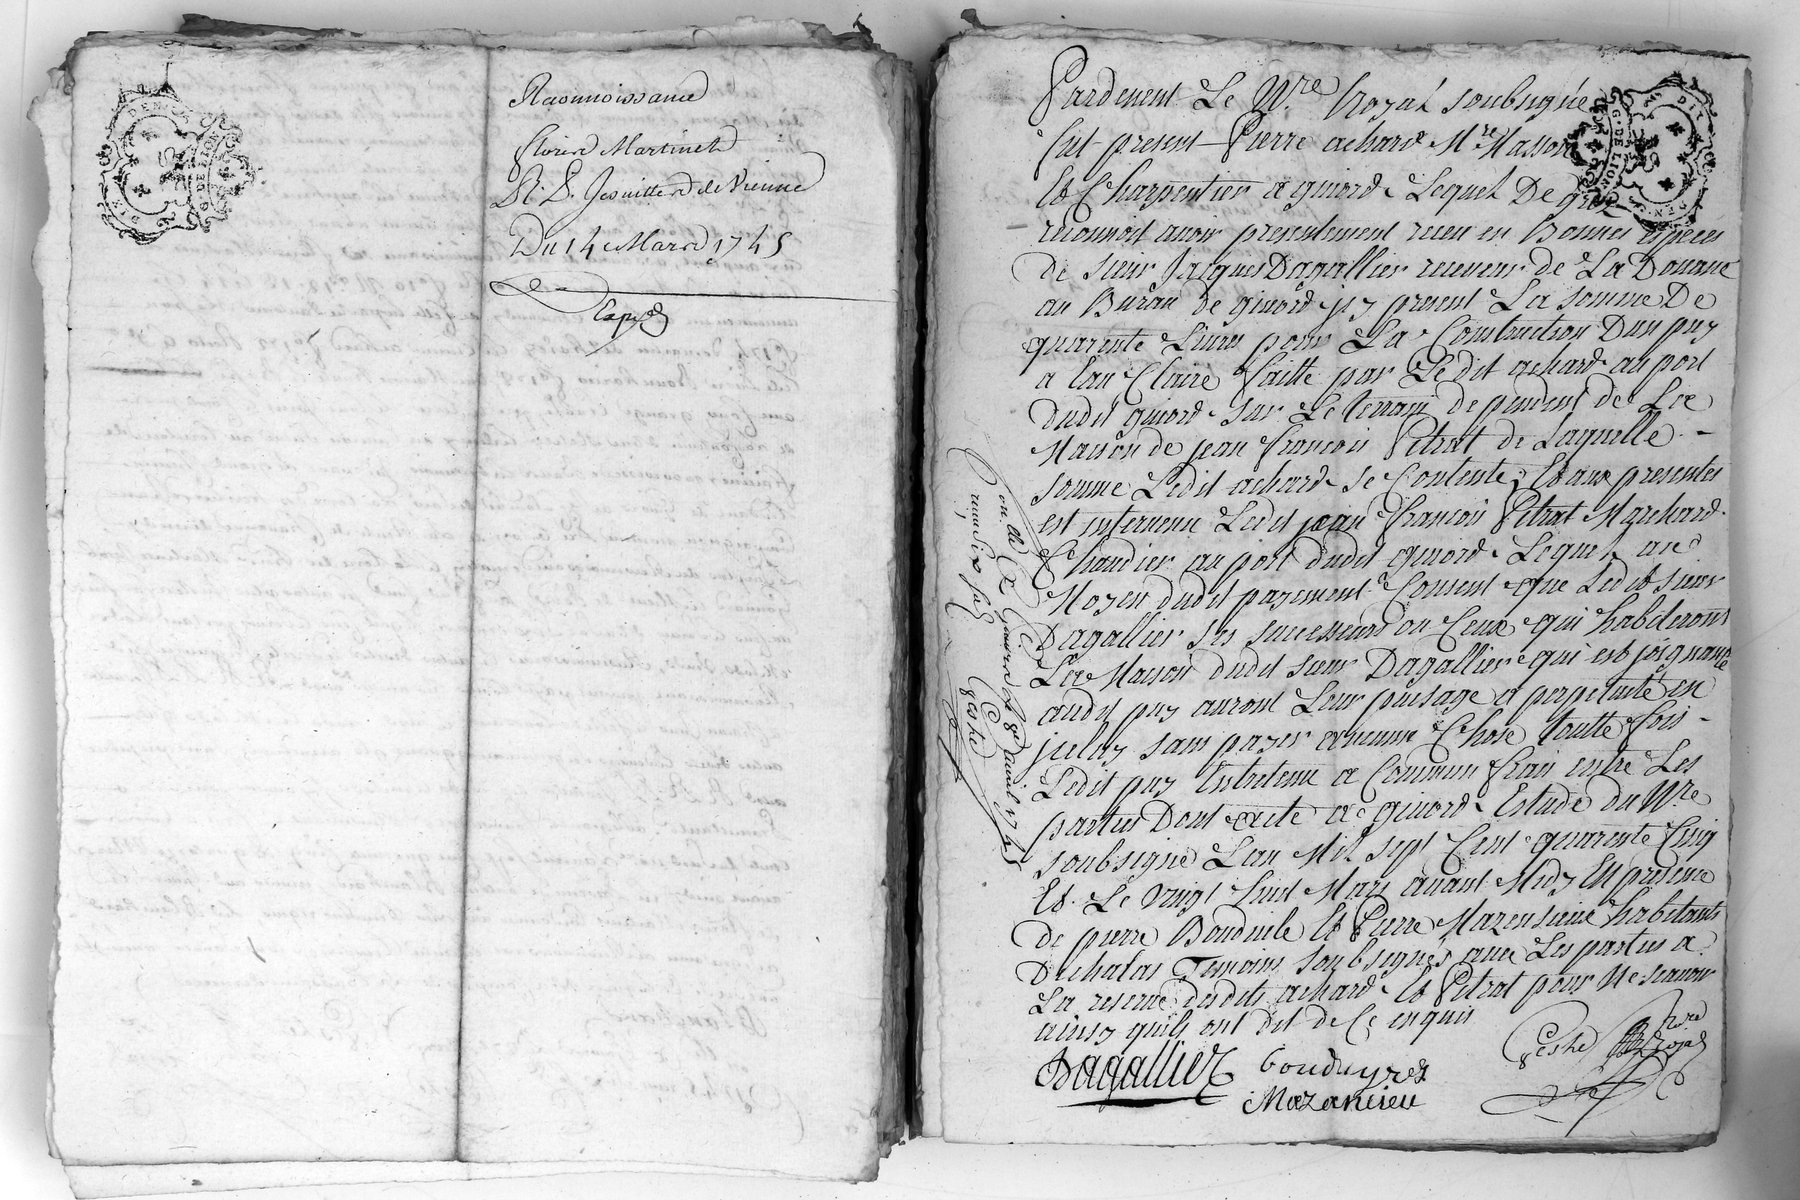 Reconnoissance
Florie Martinet
R. P. Jesuittes de Vienne
Du 14 Mars 1745
DIX DEN
G. DE LION
Pardevent Le Nre Royal soubsigné
fut present Pierre achard Mre Masson
et Charpentier a givord Lequel De gré
reconnoit avoir presentement receu en Bonnes especes
de sieur Jacques Dagallier receveur de La Douane
au Bureau de givord icy present La somme De
quarente Livres pour La Construction Dun puy
a Eau Claire faitte par Ledit achard au port
dudit givord sur Le terrain dependent de La
Maison de jean françois Pitrat de Laquelle
somme Ledit achard se Contente, et aux presentes
est intervenu Ledit jean françois Pitrat Marchand
Chandier au port dudit givord Lequel au
Moyen dudit payement Consent que Ledit sieur
Dagallier ses successeurs ou Ceux qui habiterons
La Maison dudit sieur Dagallier qui est joignante
audit puy auront Leur puisage a perpetuité en
jceluy sans payer aucune Chose toutte fois
Ledit puy Entretenu a Commun frais entre Les
parties Dont acte a givord Estude du Nre
soubsigné L'an Mil sept Cent quarente Cinq
et Le vingt huit Mars avant Midy En presence
de pierre Bouduile et Pierre Mazensieue habitants
De chalas Temoins soubsignés avec Les parties a
La reserve desdits achard et Pitrat pour Ne scavoir
ainsy quils ont dit de Ce enquis
Dagallier
Mazanieu
on. lé a Givord Le 8e avril 1745